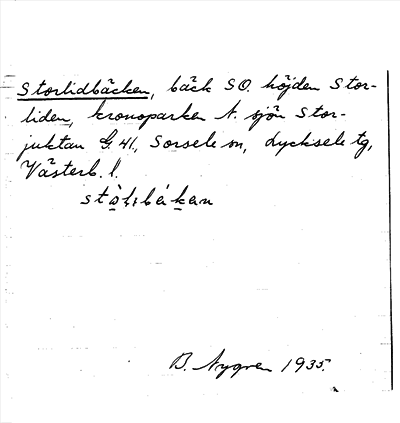 Storlidbäcken, bäck SO. höjden Stor-
liden, kronoparken N. sjön Stor-
juktan G. 41., Sorsele sn, Lycksele tg,
Västerb. l.
B. Nygren 1935.